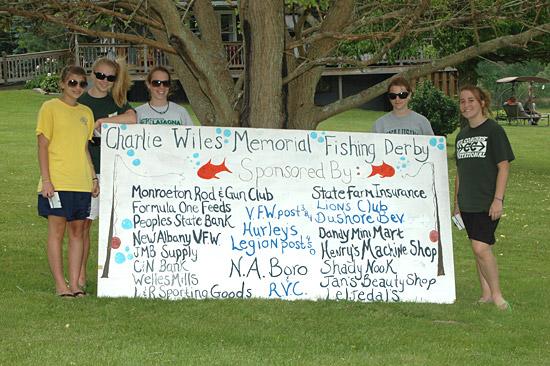 Charlie Wiles Memorial Fishing Derby
Sponsored By:
Monroeton Rod & Gun Club
Formula One Feeds
Peoples State Bank
New Albany V.F.W.
JMB Supply
CiN Bank
Welles Mills
L&R Sporting Goods
V.F.W. post
Hurley's
Legion post
N.A. Boro
R.V.C.
State Farm Insurance
Lions Club
Dushore Bev.
Dandy Mini Mart
Henry's Machine Shop
Shady Nook
Jan's Beauty Shop